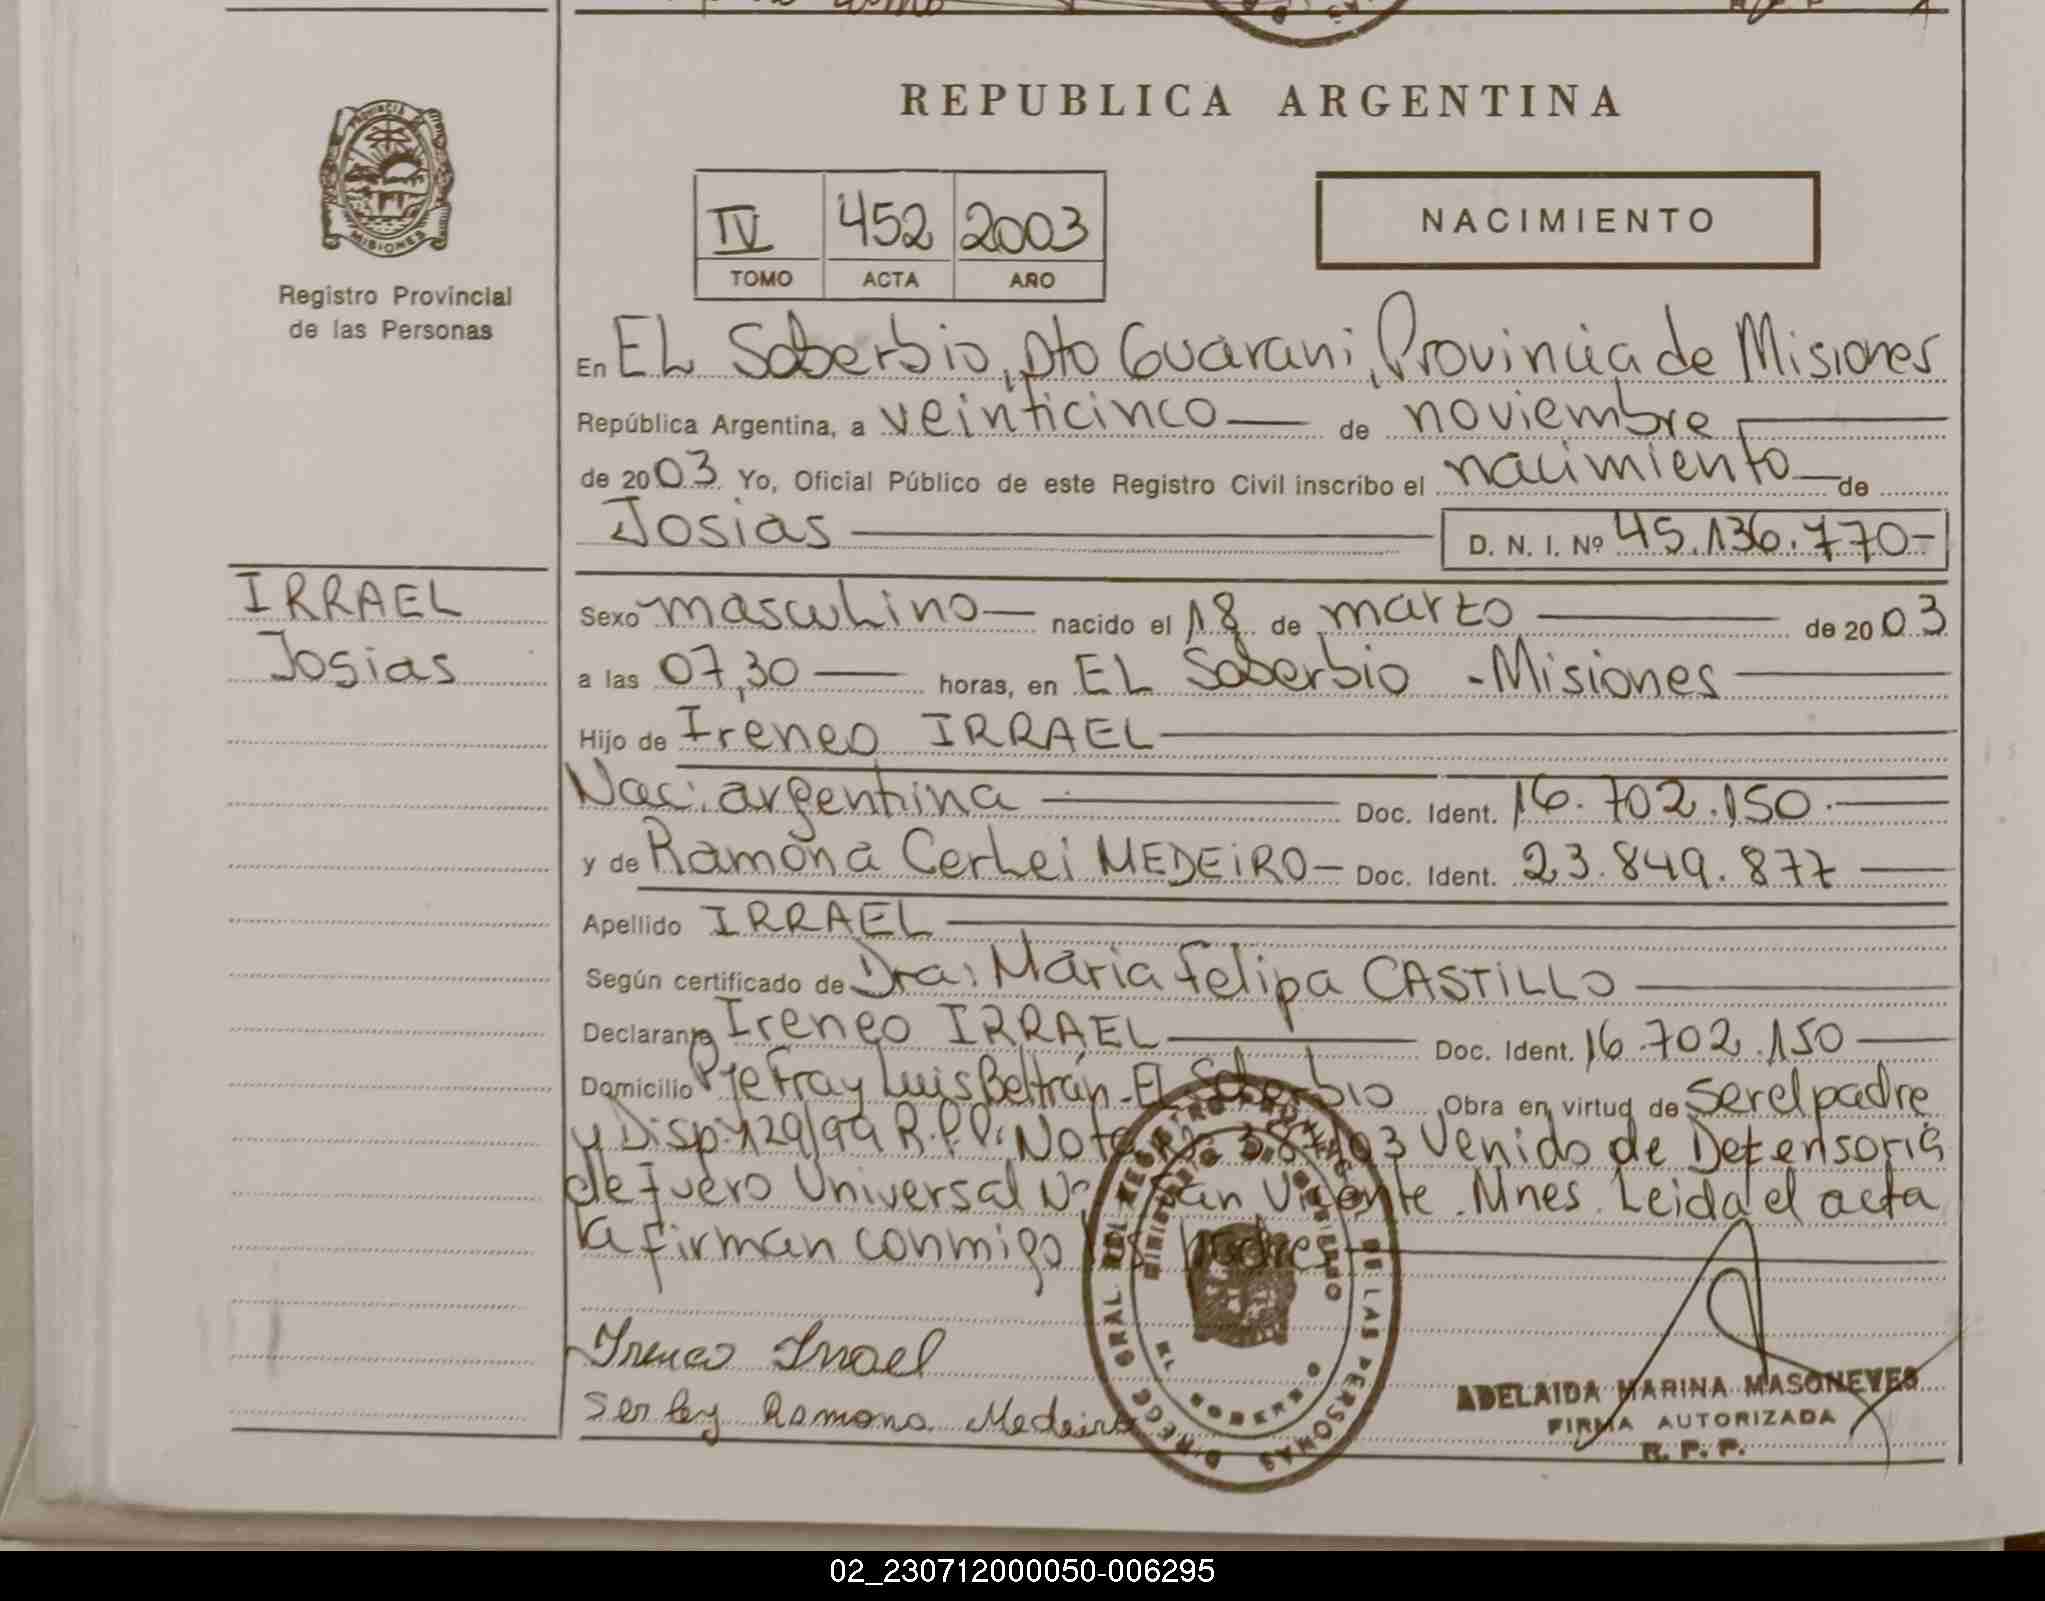 REPUBLICA ARGENTINA
PROVINCIA DE
MISIONES
Registro Provincial
de las Personas
IV 452 2003
TOMO ACTA AÑO
NACIMIENTO
En EL Soberbio, Dto Guarani, Provincia de Misiones
República Argentina, a veinticinco de noviembre
de 2003 Yo, Oficial Público de este Registro Civil inscribo el nacimiento de
Josias D. N. I. Nº 45.136.770-
IRRAEL
Josias
Sexo masculino nacido el 18 de marzo de 2003
a las 07,30 horas, en EL Soberbio - Misiones
Hijo de Ireneo IRRAEL
Nac: argentina Doc. Ident. 16.702.150.
y de Ramona Cerlei MEDEIRO- Doc. Ident. 23.849.877
Apellido IRRAEL
Según certificado de Dra: Maria Felipa CASTILLO
Declarante Ireneo IRRAEL Doc. Ident. 16.702.150
Domicilio Pje Fray Luis Beltrán - El Soberbio Obra en virtud de ser el padre
y Disp. 129/99 R.P.P. Nota 387/03 Venido de Defensoria
de Fuero Universal Nº San Vicente. Mnes. Leida el acta
la firman conmigo los padres
Ireneo Irrael
Serley Ramona Medeiro
DIRECC GRAL DEL REGISTRO PROVINCIAL DE LAS PERSONAS
MINISTERIO DE GOBIERNO
EL SOBERBIO
ADELAIDA MARINA MASONEVES
FIRMA AUTORIZADA
R. P. P.
02_230712000050-006295